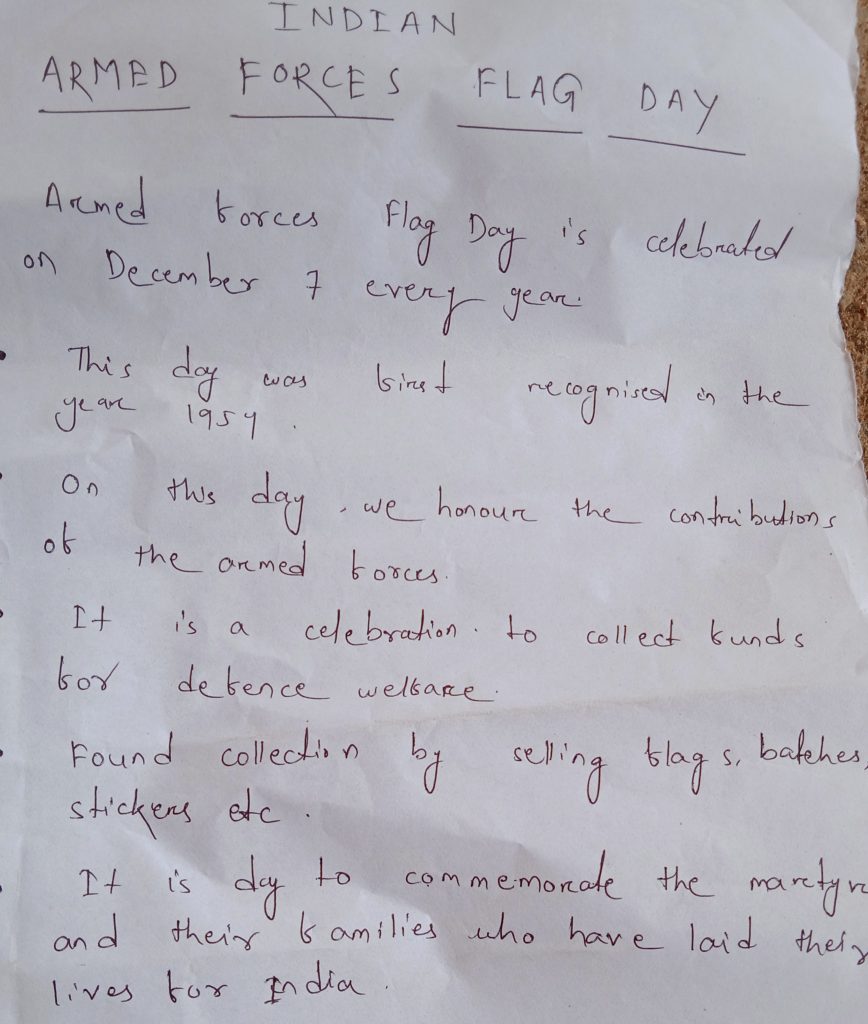 INDIAN
ARMED FORCES FLAG DAY
Armed forces Flag Day is celebrated
on December 7 every year.
• This day was first recognised in the
year 1954.
• On this day, we honour the contributions
of the armed forces.
• It is a celebration. to collect funds
for defence welfare.
• Found collection by selling flags, batches,
stickers etc.
• It is day to commemorate the martyr
and their families who have laid their
lives for India.